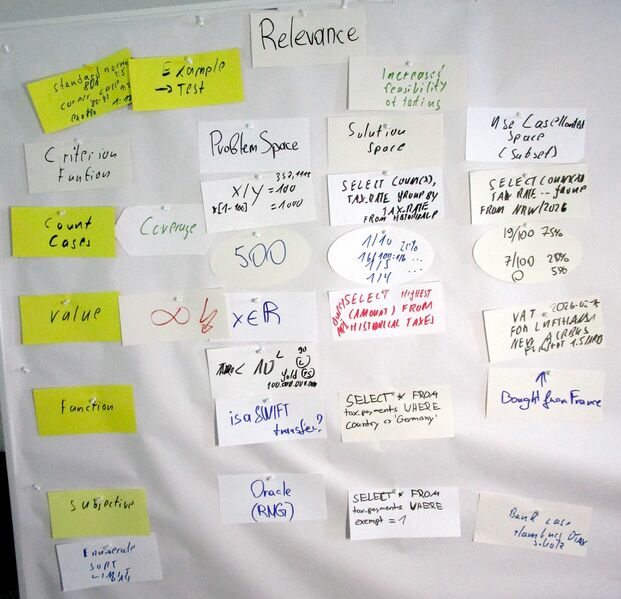 Relevance
standard
corner case
Example
→ Test
Increased
feasibility
of testing
Criterion
Function
Problem Space
Solution
space
Use Case/
Space
(Subset)
X/Y = 100
x[1-100] = 1000
SELECT COUNT(*),
TAX.RATE GROUP BY
TAX.RATE
FROM HISTORICAL
SELECT COUNT(*)
TAX RATE ... GROUP
FROM NRW/2026
Count
Cases
Coverage
500
1/10 25%
16/100
1/5 ...
1/4 ...
19/100 75%
7/100 25%
0 5%
value
∞
x∈R
ONLY SELECT HIGHEST
(AMOUNT) FROM
HISTORICAL TAXES
VAT
FOR LUFTHANSA
NEW
< 10
100.000.000.000
function
is a SWIFT
transfer?
SELECT * FROM
tax.payments WHERE
country <> 'Germany'
↑
Bought from France
Subjective
Oracle
(RNG)
SELECT * FROM
tax.payments WHERE
exempt = 1
Bank case
Hamburg
Scholz
Enumerate
SORT